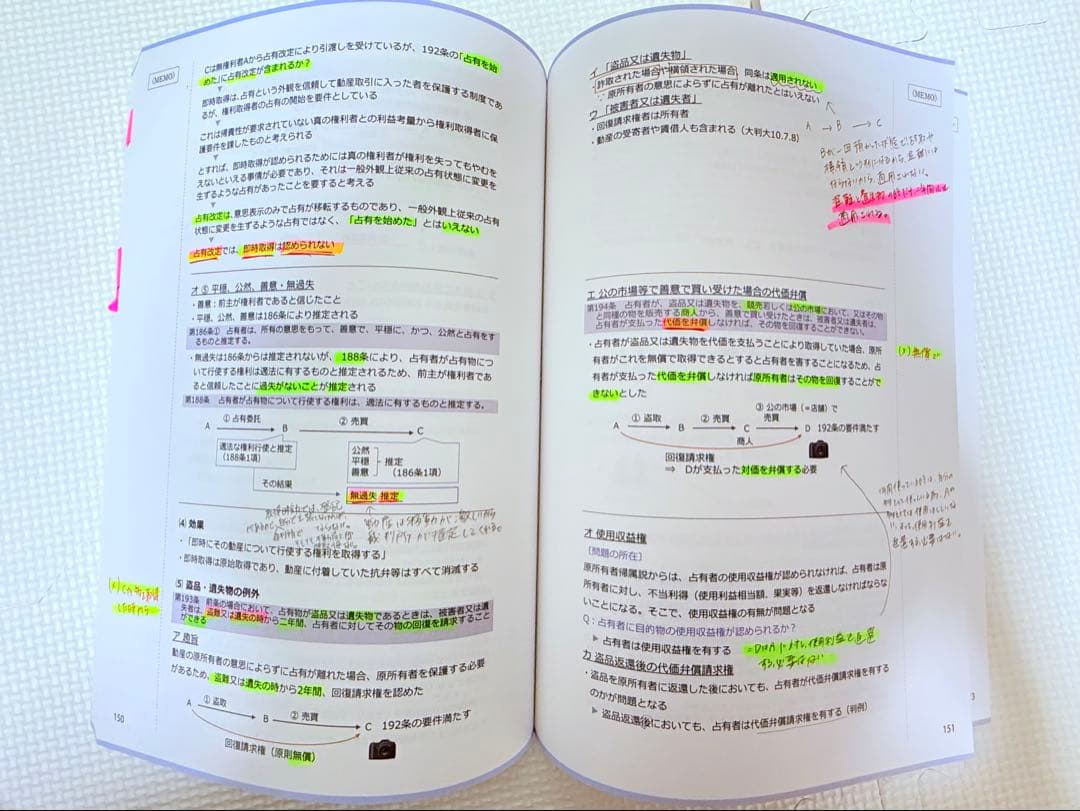 《MEMO》
Cは無権利者Aから占有改定により引渡しを受けているが、192条の「占有を始
めた」に占有改定が含まれるか？
即時取得は、占有という外観を信頼して動産取引に入った者を保護する制度であ
るが、権利取得者の占有の開始を要件としている
これは帰責性が要求されていない真の権利者との利益考量から権利取得者に保
護要件を課したものと考えられる
とすれば、即時取得が認められるためには真の権利者が権利を失ってもやむを
えないといえる事情が必要であり、それは一般外観上従来の占有状態に変更を
生ずるような占有があったことを要すると考える
占有改定は、意思表示のみで占有が移転するものであり、一般外観上従来の占有
状態に変更を生ずるような占有ではなく、「占有を始めた」とはいえない
占有改定では、即時取得は認められない
オ ⑤ 平穏、公然、善意・無過失
・善意：前主が権利者であると信じたこと
・平穏、公然、善意は186条により推定される
第186条① 占有者は、所有の意思をもって、善意で、平穏に、かつ、公然と占有をす
るものと推定する。
・無過失は186条からは推定されないが、188条により、占有者が占有物につ
いて行使する権利は適法に有するものと推定されるため、前主が権利者であ
ると信頼したことに過失がないことが推定される
第188条 占有者が占有物について行使する権利は、適法に有するものと推定する。
① 占有委託 ② 売買
A B C
適法な権利行使と推定
（188条1項）
公然
平穏
善意
推定
（186条1項）
その結果
無過失 推定
⑷ 効果
・「即時にその動産について行使する権利を取得する」
・即時取得は原始取得であり、動産に付着していた抗弁等はすべて消滅する
⑸ 盗品・遺失物の例外
第193条 前条の場合において、占有物が盗品又は遺失物であるときは、被害者又は遺
失者は、盗難又は遺失の時から二年間、占有者に対してその物の回復を請求すること
ができる
ア 趣旨
動産の原所有者の意思によらずに占有が離れた場合、原所有者を保護する必要
があるため、盗難又は遺失の時から2年間、回復請求権を認めた
① 盗取 ② 売買
A B C 192条の要件満たす
回復請求権（原則無償）
150
《MEMO》
イ 「盗品又は遺失物」
詐取された場合や横領された場合、同条は適用されない
∵ 原所有者の意思によらずに占有が離れたとはいえない
ウ 「被害者又は遺失者」
・回復請求権者は所有者
・動産の受寄者や賃借人も含まれる（大判大10.7.8）
A → B → C
エ 公の市場等で善意で買い受けた場合の代価弁償
第194条 占有者が、盗品又は遺失物を、競売若しくは公の市場において、又はその物
と同種の物を販売する商人から、善意で買い受けたときは、被害者又は遺失者は、
占有者が支払った代価を弁償しなければ、その物を回復することができない。
・占有者が盗品又は遺失物を代価を支払うことにより取得していた場合、原所
有者がこれを無償で取得できるとすると占有者を害することになるため、占
有者が支払った代価を弁償しなければ原所有者はその物を回復することがで
きないとした
③ 公の市場（＝店舗）で
① 盗取 ② 売買 売買
A B C D 192条の要件満たす
商人
回復請求権
⇒ Dが支払った対価を弁償する必要
オ 使用収益権
［問題の所在］
原所有者帰属説からは、占有者の使用収益権が認められなければ、占有者は原
所有者に対し、不当利得（使用利益相当額、果実等）を返還しなければならな
いことになる。そこで、使用収益権の有無が問題となる
Q：占有者に目的物の使用収益権が認められるか？
▶ 占有者は使用収益権を有する
カ 盗品返還後の代価弁償請求権
・盗品を原所有者に返還した後においても、占有者が代価弁償請求権を有する
のかが問題となる
▶ 盗品返還後においても、占有者は代価弁償請求権を有する（判例）
151